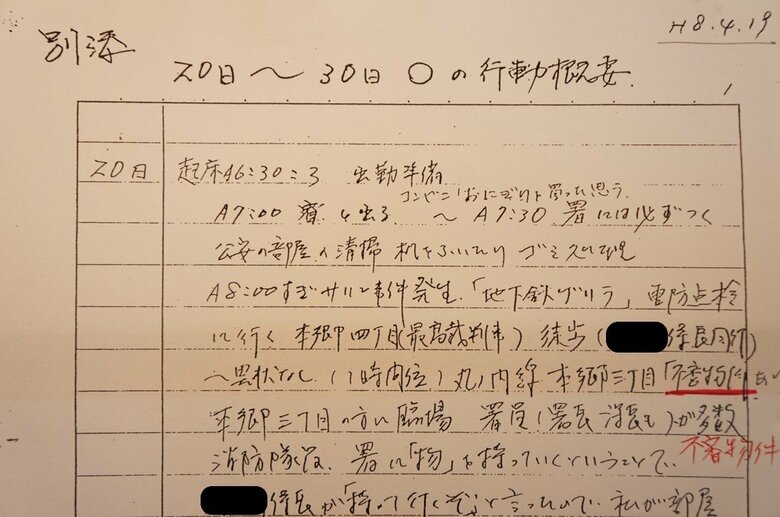 H8.4.19
別添
20日〜30日 〇の行動概要
20日 起床A6:30ころ 出勤準備
コンビニ「おにぎり」を買ったと思う
A7:00 寮を出る 〜A7:30 署には必ずつく
公安の部屋の清掃 机をふいたり ゴミ処理
A8:00すぎサリン事件発生.「地下鉄ゲリラ」 点検
に行く 本郷四丁目(最高裁判事) 徒歩( 係長同行)
〜異状なし.(1時間位)丸ノ内線 本郷三丁目「不審物件」あり
本郷三丁目の方に臨場 署員(署長 課長も)が多数
不審物件
消防隊 署に「物」を持っていくということで.
係長が「持って行くぞ」と言ったので.私が部屋